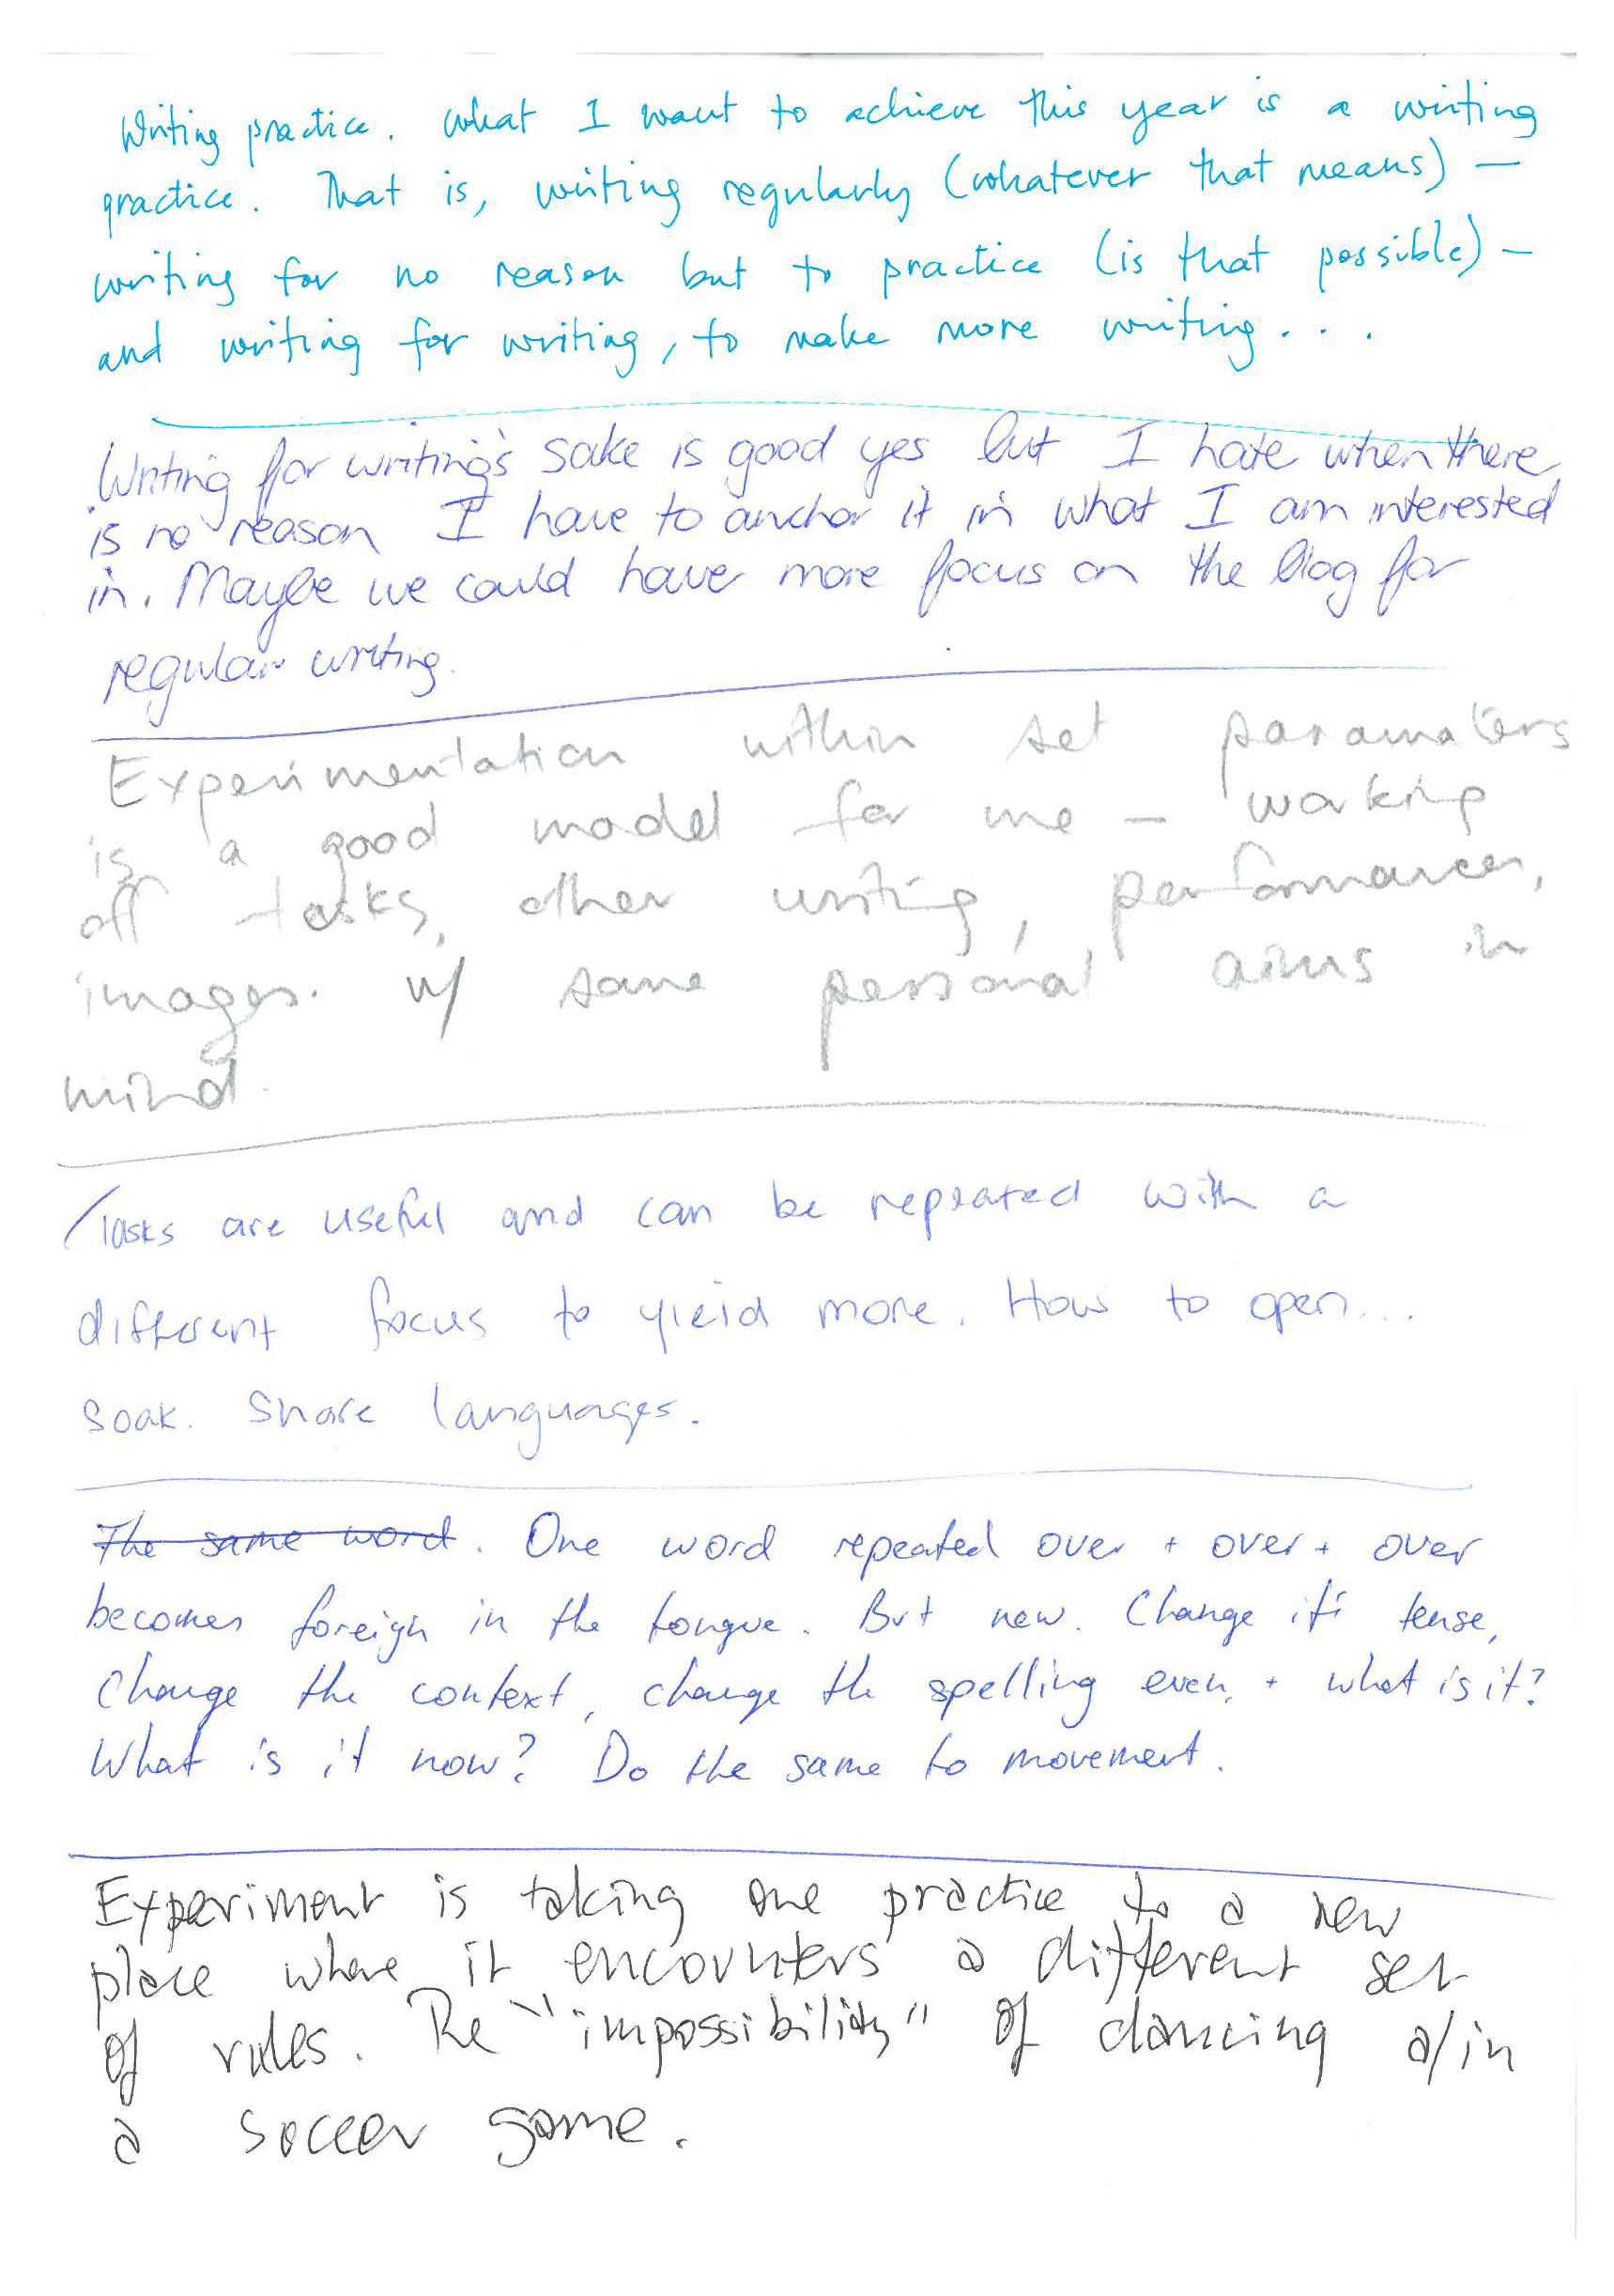 Writing practice. What I want to achieve this year is a writing
practice. That is, writing regularly (whatever that means) —
writing for no reason but to practice (is that possible) —
and writing for writing, to make more writing . . .
Writing for writing's sake is good yes but I hate when there
is no reason I have to anchor it in what I am interested
in. Maybe we could have more focus on the blog for
regular writing.
Experimentation within set paramaters
is a good model for me – working
off tasks, other writing, performances,
images. w/ some personal aims in
mind.
Tasks are useful and can be repeated with a
different focus to yield more. How to open...
soak. Share languages.
The same word. One word repeated over + over + over
becomes foreign in the tongue. But new. Change it's tense,
change the context, change the spelling even, + what is it?
What is it now? Do the same to movement.
Experiment is taking one practice to a new
place where it encounters a different set
of rules. The "impossibility" of dancing a/in
a soccer game.